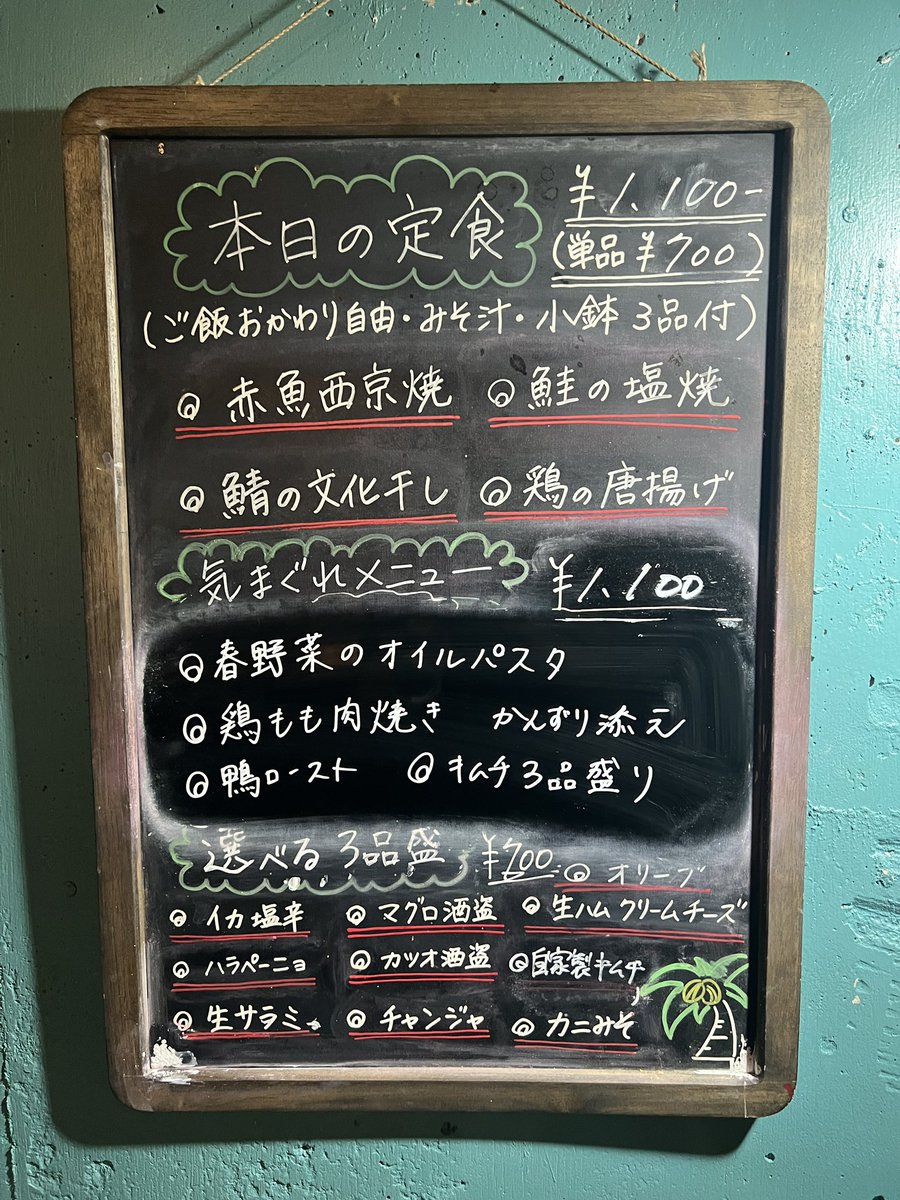 本日の定食 ¥1.100-
(単品¥700)
(ご飯おかわり自由・みそ汁・小鉢3品付)
◎赤魚西京焼 ◎鮭の塩焼
◎鯖の文化干し ◎鶏の唐揚げ
気まぐれメニュー ¥1.100
◎春野菜のオイルパスタ
◎鶏もも肉焼き かんずり添え
◎鴨ロースト ◎キムチ3品盛り
選べる3品盛 ¥700 ◎オリーブ
◎イカ塩辛 ◎マグロ酒盗 ◎生ハムクリームチーズ
◎ハラペーニョ ◎カツオ酒盗 ◎自家製キムチ
◎生サラミ ◎チャンジャ ◎カニみそ